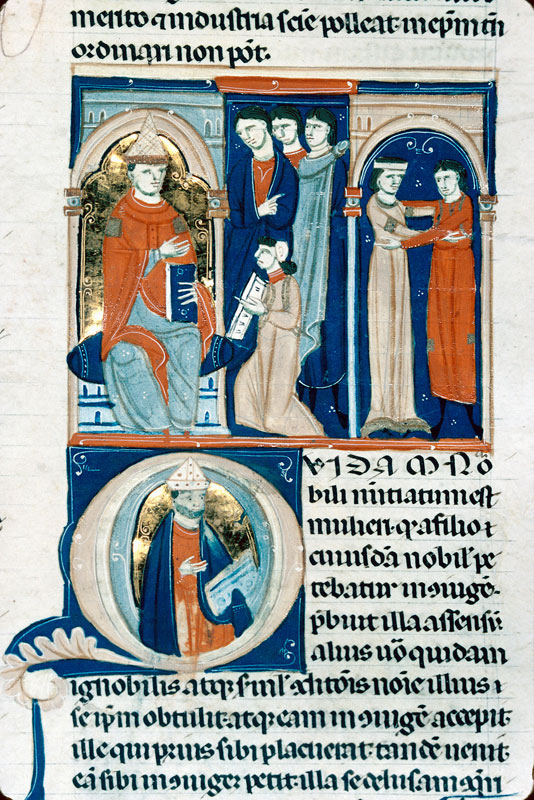 merito ⁊ industria scie polleat. inepm tñ
ordinari non pōt.
QVIDAM NO
bili nūtiatum est
mulieri. q̄ a filio
cuiusdā nobil' pe
tebatur in ɔiugē.
p̄buit illa assensū.
alius uō quidam
ignobilis atq; s̄uil' ɔditōis noīe illius
se ip̄m obtulit. atq; eam in ɔiugē accepit.
ille qui prius sibi placuerat. tandē uenit.
eā sibi in ɔiugē petit. illa se delusam ɔq̄ri